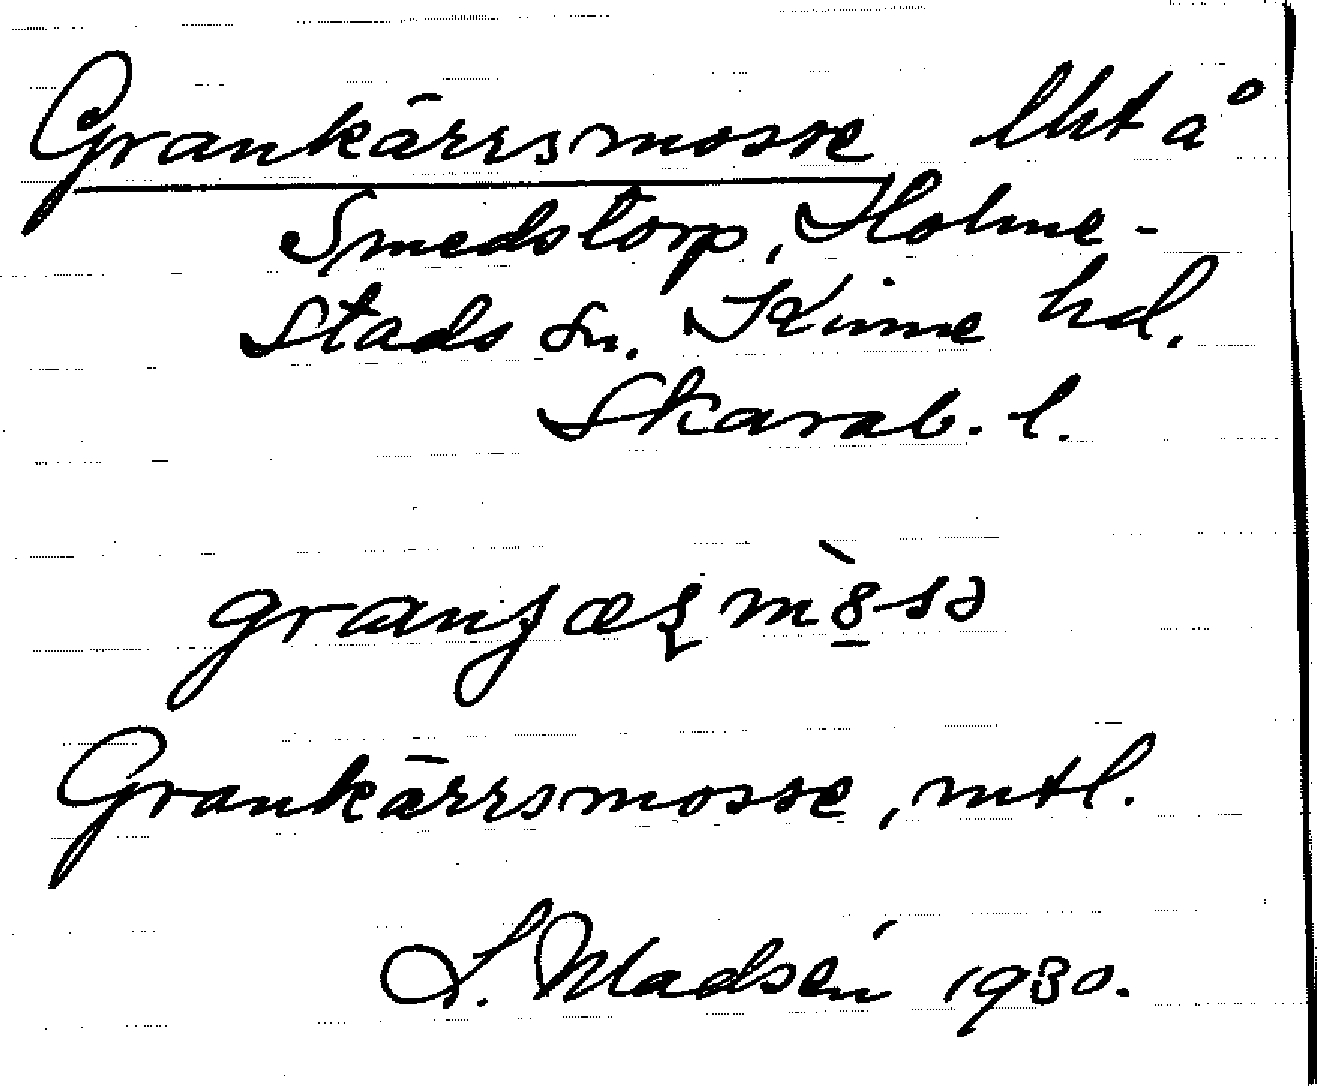 Grankärrsmosse lht å
Smedstorp, Holme-
stads sn. Kinne hd.
Skarab. l.
Grankärrsmosse, mtl.
L. Madsén 1930.